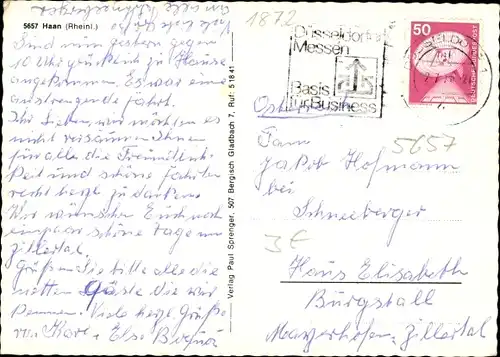 5657 Haan (Rheinl.)
Sind nun gestern gegen
10 Uhr glücklich zu Hause
angekommen. Es war eine
anstrengende Fahrt.
Ihr Lieben, wir möchten es
nicht versäumen Ihnen
für alle die Freundlich-
keit und schöne Fahrten
recht herzl. zu danken.
Wir wünschen Euch noch
ein paar schöne Tage im
Zillertal.
Grüßen Sie bitte alle die
netten Gäste die wir
kennen. Viele herzl. Grüße
von Karl. Else
Verlag Paul Sprenger, 507 Bergisch Gladbach 7, Ruf: 5 18 41
1872
Düsseldorfer
Messen
Basis
für Business
50
DEUTSCHE BUNDESPOST
5657
Fam
Jakob Hofmann
bei
Schneeberger
3€
Haus Elisabeth
Burgstall
Mayrhofen, Zillertal